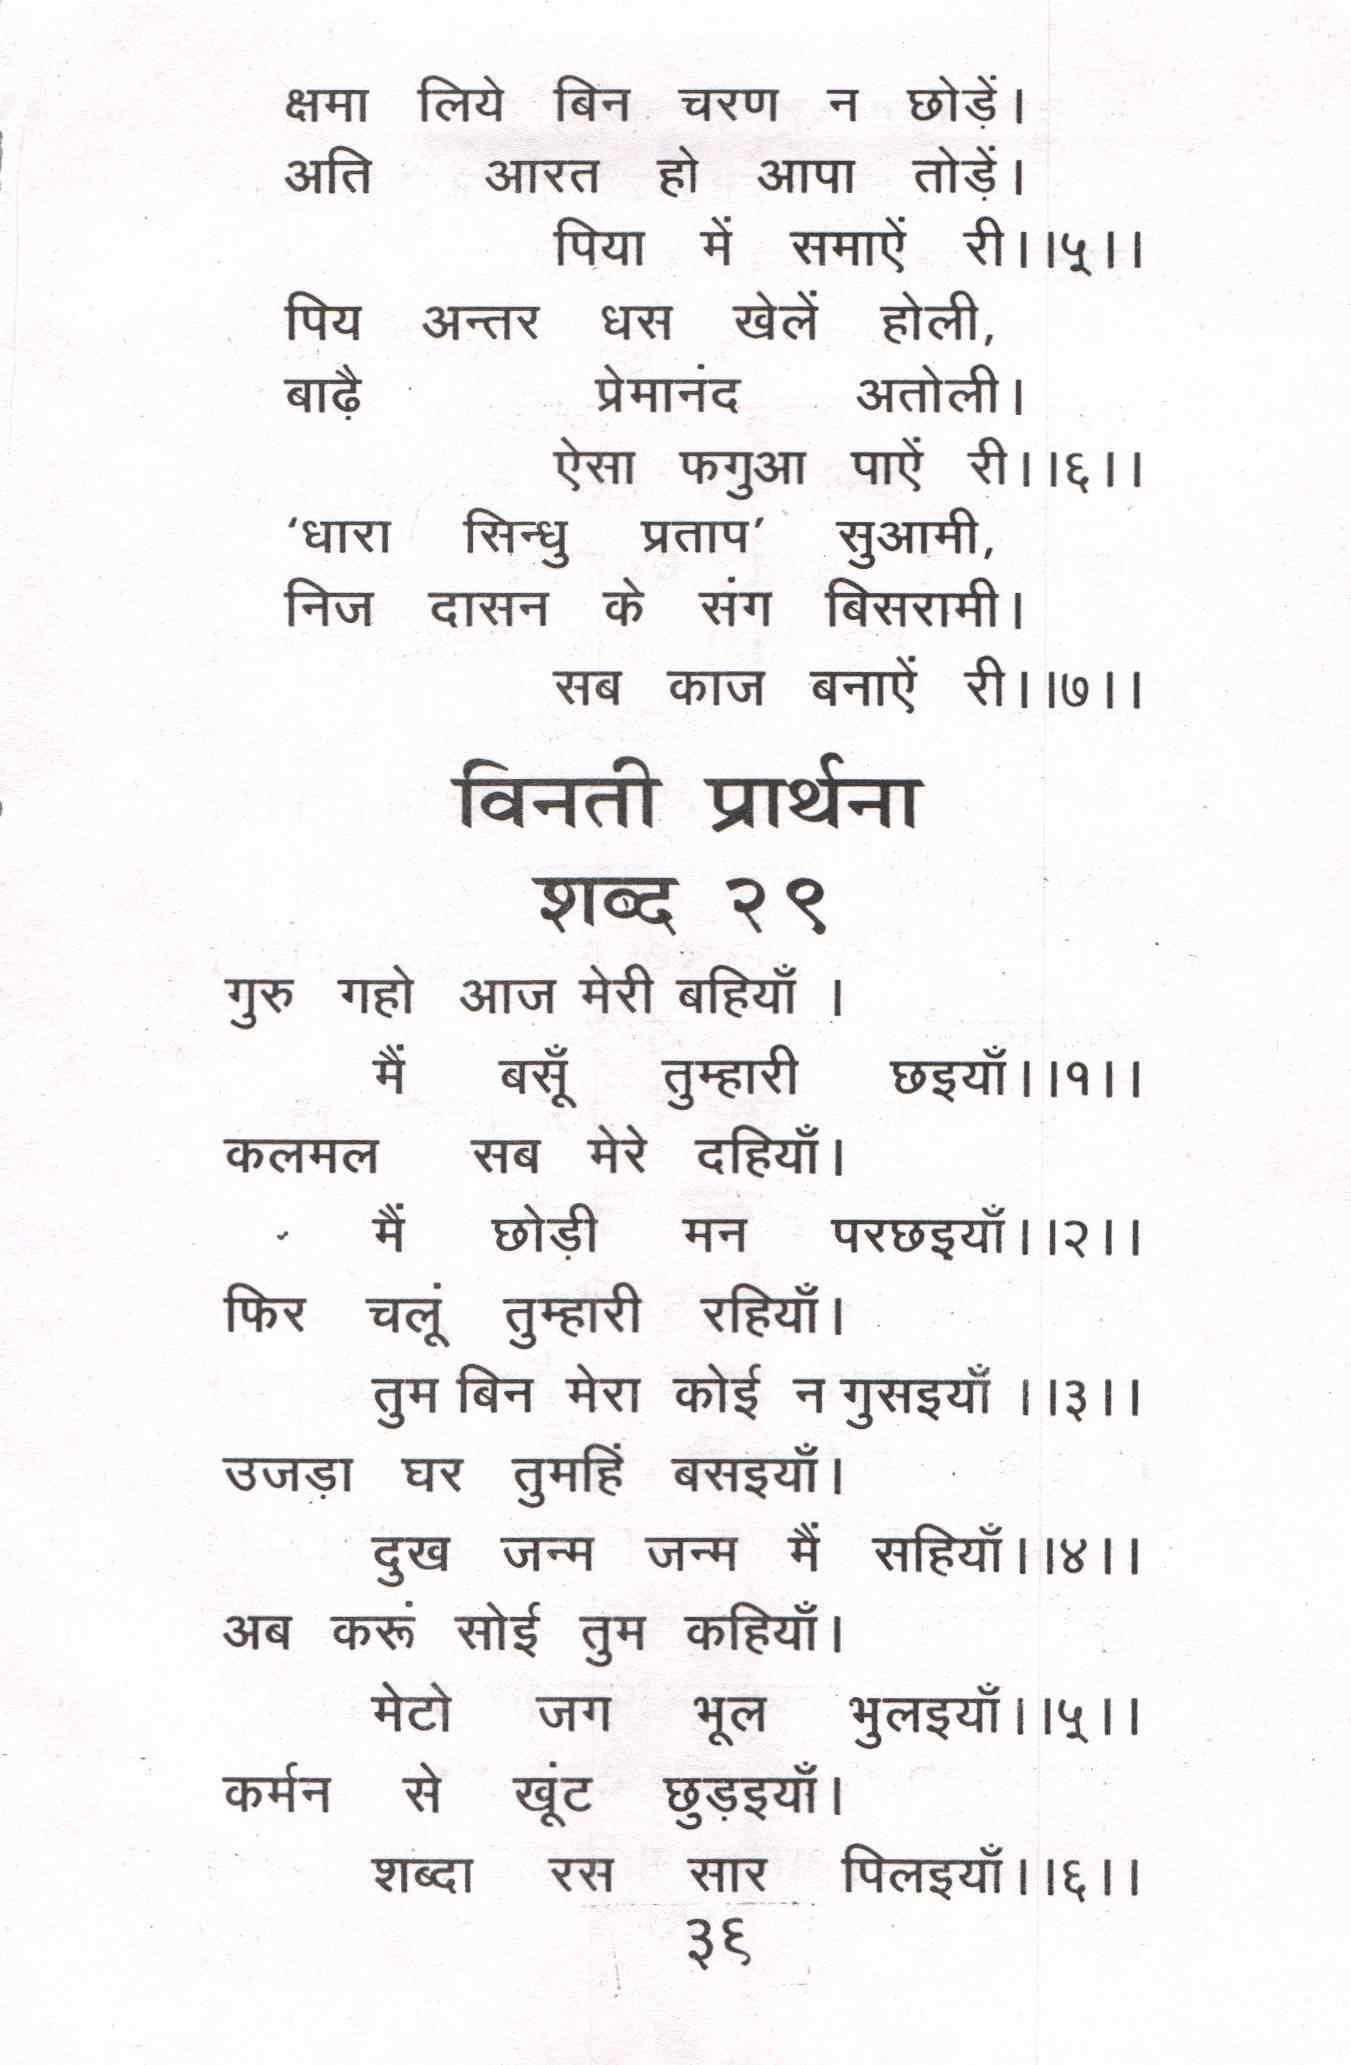 क्षमा लिये बिन चरण न छोड़ें।
अति आरत हो आपा तोड़ें।
पिया में समाऐं री।।५।।
पिय अन्तर धस खेलें होली,
बाढ़ै प्रेमानंद अतोली।
ऐसा फगुआ पाऐं री।।६।।
‘धारा सिन्धु प्रताप’ सुआमी,
निज दासन के संग बिसरामी।
सब काज बनाऐं री।।७।।
विनती प्रार्थना
शब्द २९
गुरु गहो आज मेरी बहियाँ ।
मैं बसूँ तुम्हारी छइयाँ।।१।।
कलमल सब मेरे दहियाँ।
मैं छोड़ी मन परछइयाँ।।२।।
फिर चलूं तुम्हारी रहियाँ।
तुम बिन मेरा कोई न गुसइयाँ ।।३।।
उजड़ा घर तुमहिं बसइयाँ।
दुख जन्म जन्म मैं सहियाँ।।४।।
अब करूं सोई तुम कहियाँ।
मेटो जग भूल भुलइयाँ।।५।।
कर्मन से खूंट छुड़इयाँ।
शब्दा रस सार पिलइयाँ।।६।।
३६